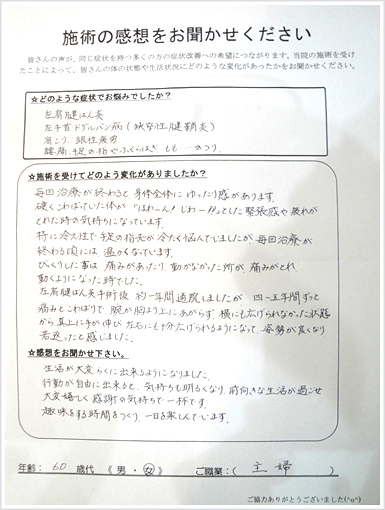 施術の感想をお聞かせください
皆さんの声が、同じ症状を持つ多くの方の症状改善への希望につながります。当院の施術を受け
たことによって、皆さんの体の状態や生活状況にどのような変化があったかをお聞かせください。
☆どのような症状でお悩みでしたか？
左肩腱ばん炎
左手首ドケルバン病(狭窄性腱鞘炎)
肩こり、眼性疲労
腰痛、手足の指やふくらはぎ もも…のつり
☆施術を受けてどのよう変化がありましたか？
毎回治療が終わると身体全体にゆったり感があります。
硬くこわばっていた体が「ほわーん！じわーっ」とした緊張感や疲れが
とれた時の気持ちになっています。
特に冷え性で手足の指先が冷たく悩んでいましたが毎回治療が
終わる頃には温かくなっています。
びっくりした事は痛みがあったり、動かなかった所が痛みがとれ
動くようになった時でした。
左肩腱ばん炎手術後 約一年間通院しましたが 四～五年間ずっと
痛みとこわばりで、腕が肩より上にあがらず、横にも広げられなかった状態
から真上に手が伸び 左右にも十分広げられるようになって、姿勢が良くなり
若返ったと感じました。
☆感想をお聞かせ下さい。
生活が大変らくに出来るようになりました。
行動が自由に出来ると、気持ちも明るくなり、前向きな生活が過ごせ
大変嬉しく感謝の気持ちで一杯です。
趣味をする時間をつくり、一日を楽しんでいます。
年齢：60 歳代 《 男・女 》 ご職業：( 主婦 )
ご協力ありがとうございました(^o^)